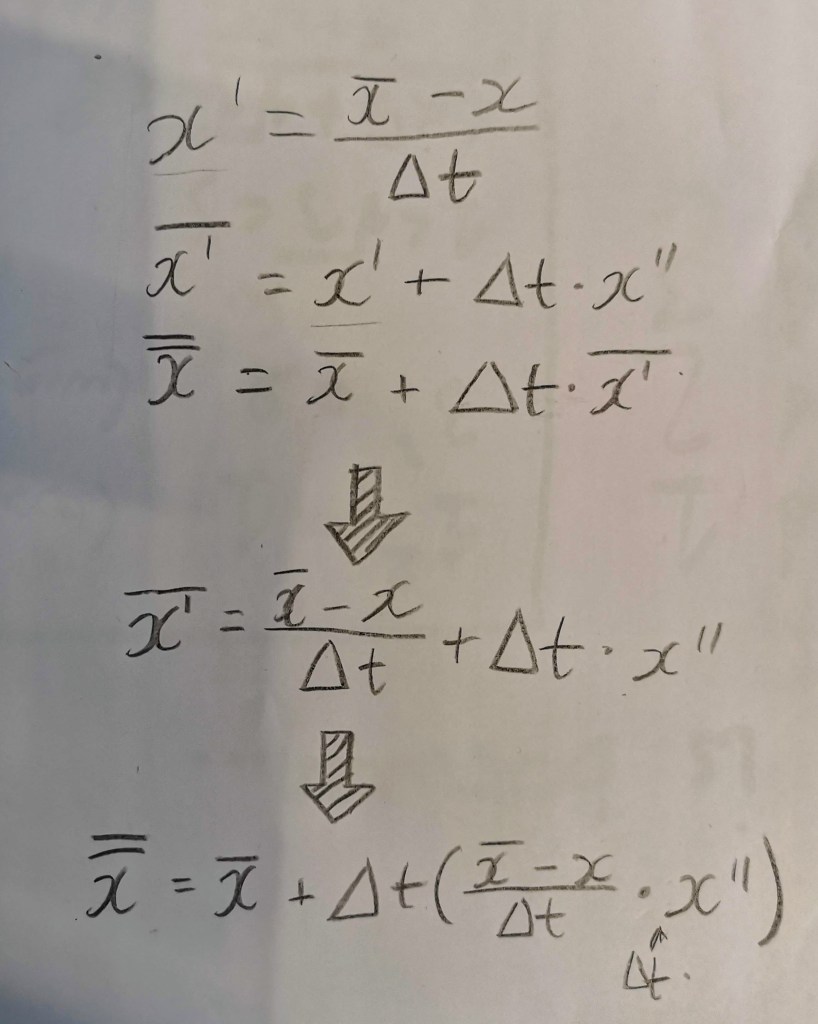 x' = (x̅ - x) / Δt
x̅'̅ = x' + Δt · x''
x̿ = x̅ + Δt · x̅'̅
x̅'̅ = (x̅ - x) / Δt + Δt · x''
x̿ = x̅ + Δt((x̅ - x) / Δt · x'')
Δt.